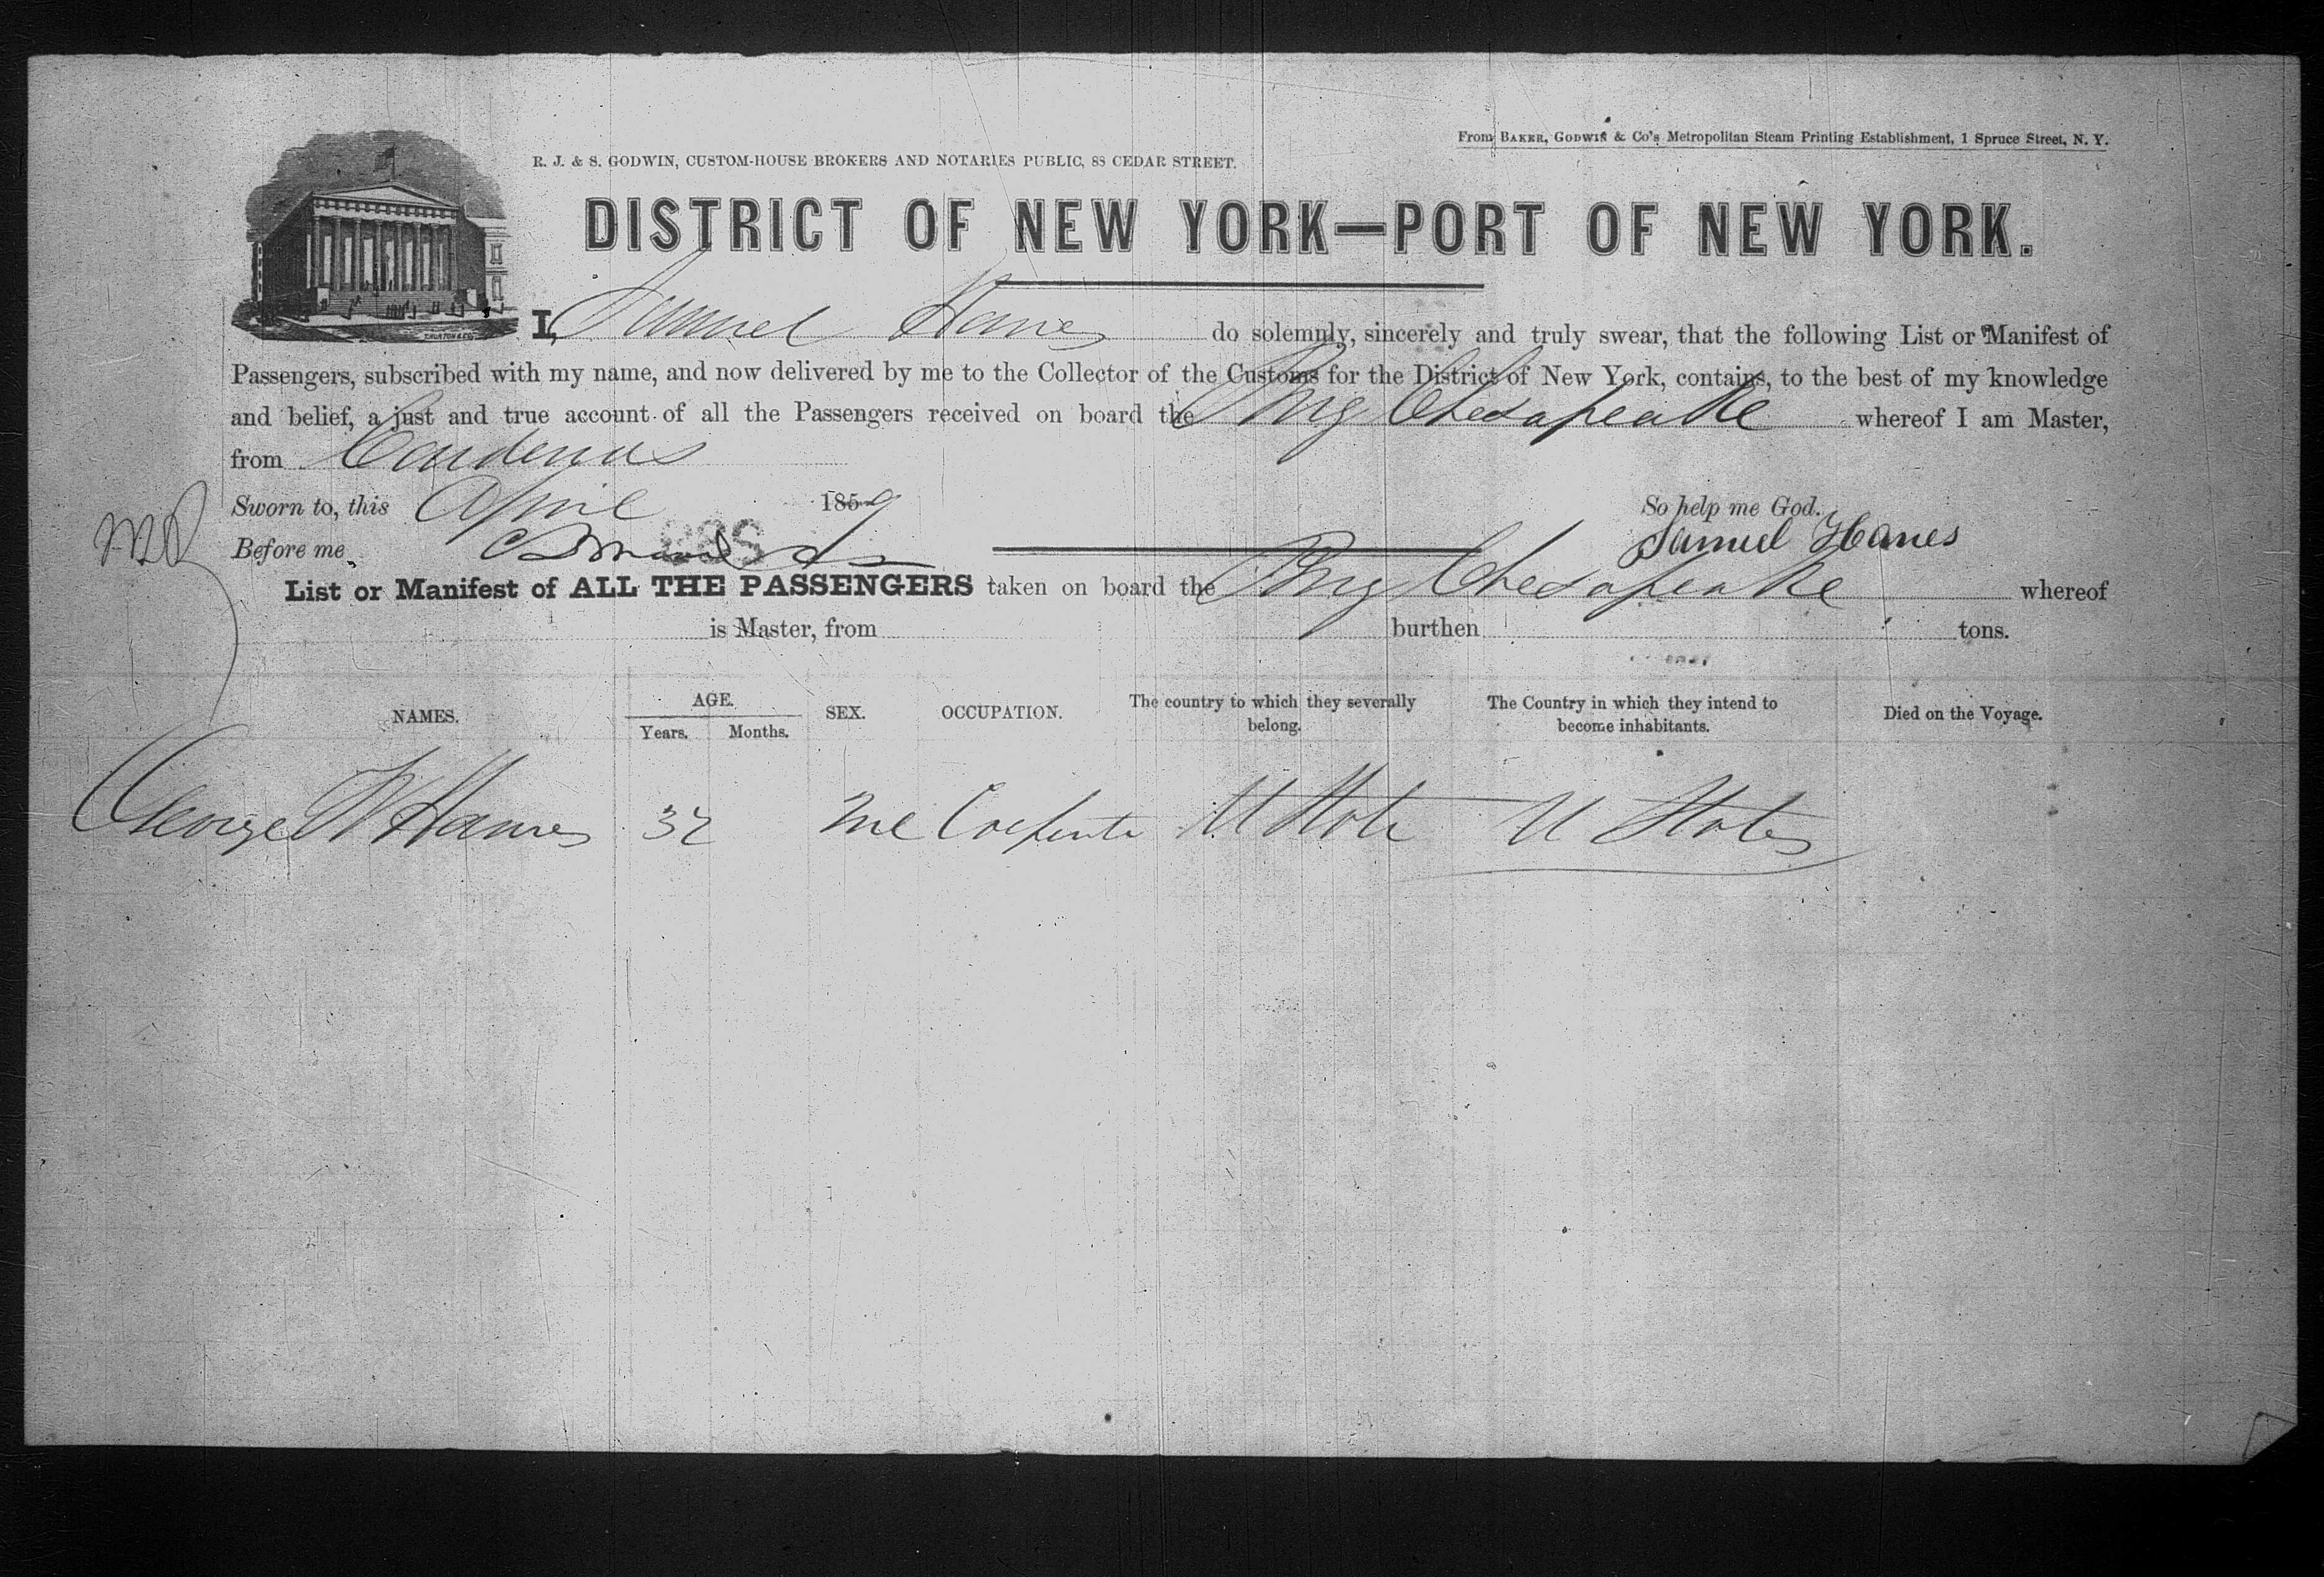 From BAKER, GODWIN & Co's Metropolitan Steam Printing Establishment, 1 Spruce Street, N. Y.
R. J. & S. GODWIN, CUSTOM-HOUSE BROKERS AND NOTARIES PUBLIC, 88 CEDAR STREET.
DISTRICT OF NEW YORK—PORT OF NEW YORK.
I, Samuel Hanes do solemnly, sincerely and truly swear, that the following List or Manifest of
Passengers, subscribed with my name, and now delivered by me to the Collector of the Customs for the District of New York, contains, to the best of my knowledge
and belief, a just and true account of all the Passengers received on board the Brig Chesapeake whereof I am Master,
from Cardenas
Sworn to, this April 1859 So help me God.
Before me Samuel Hanes
List or Manifest of ALL THE PASSENGERS taken on board the Brig Chesapeake whereof
is Master, from burthen tons.
NAMES. AGE. Years. Months. SEX. OCCUPATION. The country to which they severally belong. The Country in which they intend to become inhabitants. Died on the Voyage.
George W Hanes 32 Carpenter U State U States